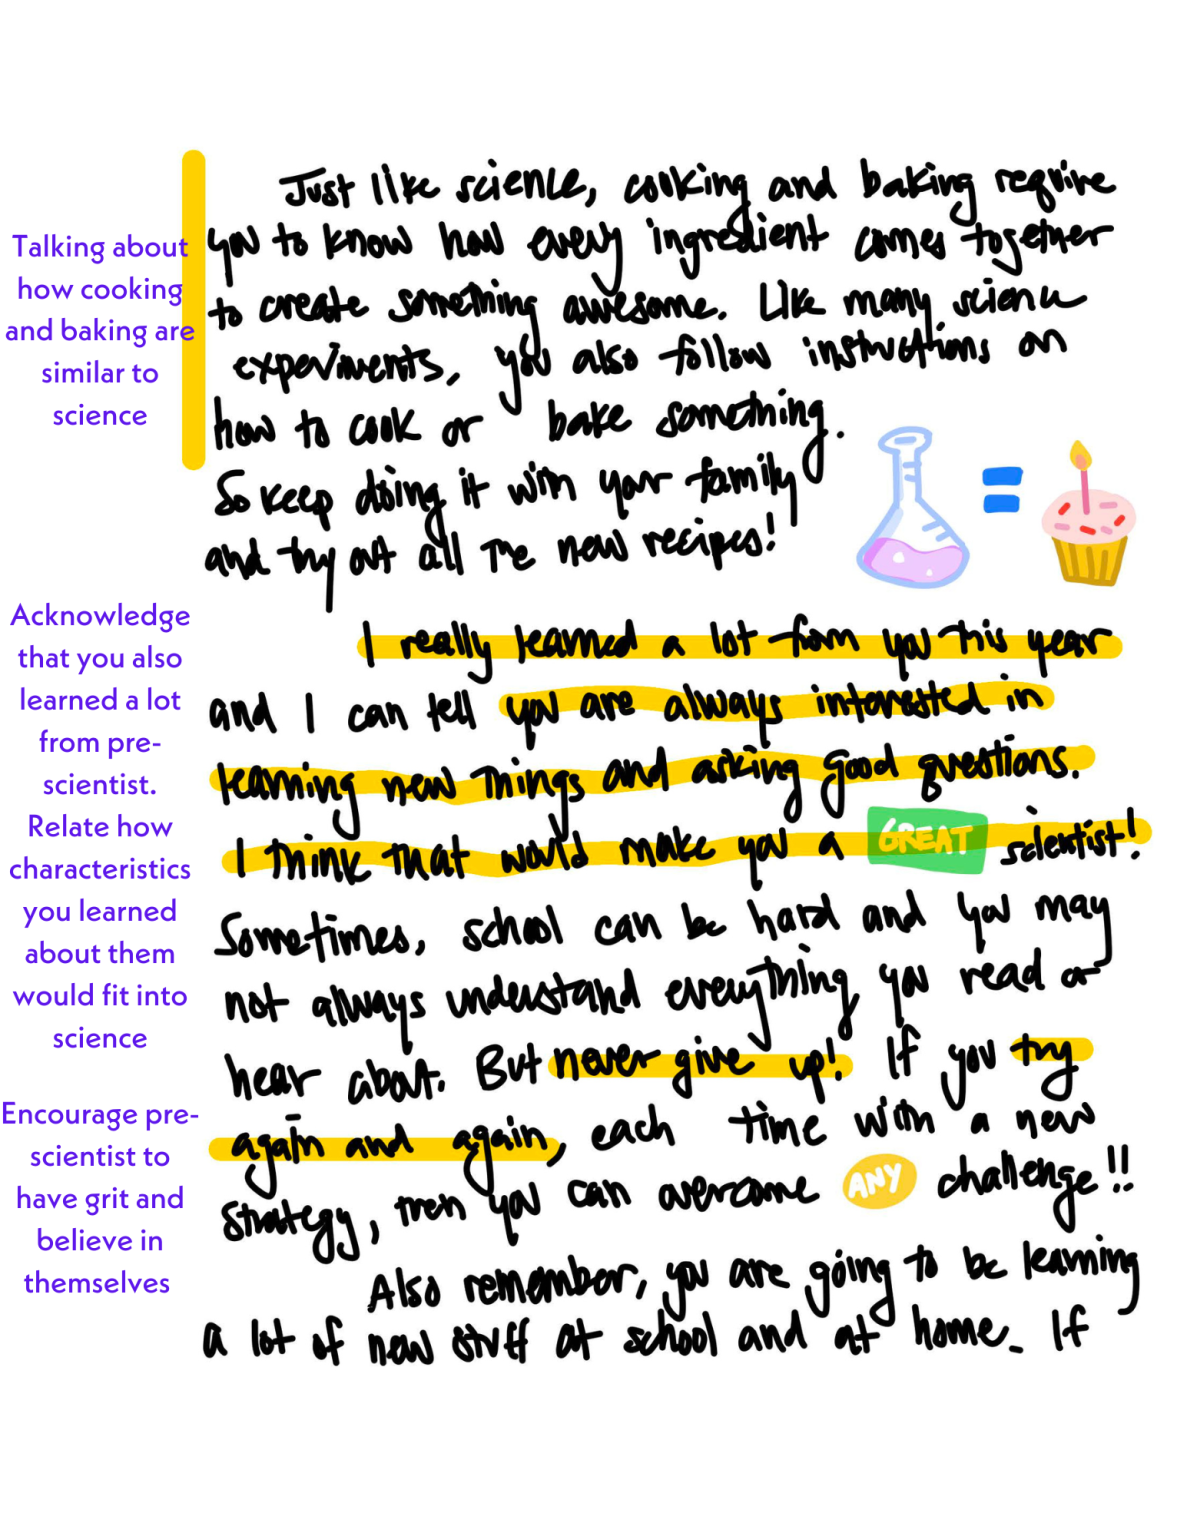 Just like science, cooking and baking require
you to know how every ingredient comes together
to create something awesome. Like many science
experiments, you also follow instructions on
how to cook or bake something.
So keep doing it with your family
and try out all the new recipes!
I really learned a lot from you this year
and I can tell you are always interested in
learning new things and asking good questions.
I think that would make you a GREAT scientist!
Sometimes, school can be hard and you may
not always understand everything you read or
hear about. But never give up! If you try
again and again, each time with a new
strategy, then you can overcome ANY challenge!!
Also remember, you are going to be learning
a lot of new stuff at school and at home. If
Talking about
how cooking
and baking are
similar to
science
Acknowledge
that you also
learned a lot
from pre-
scientist.
Relate how
characteristics
you learned
about them
would fit into
science
Encourage pre-
scientist to
have grit and
believe in
themselves